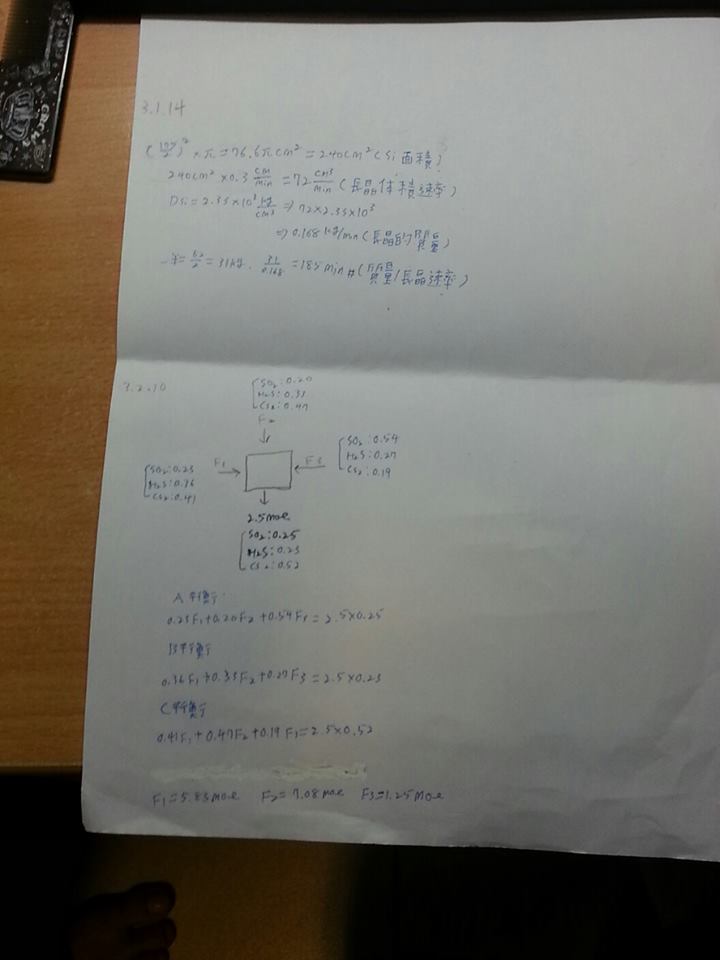 3.1.14
× π = 76.6π cm² = 240 cm² (Si 面積)
240 cm² × 0.3 cm/min = 72 cm³/min (長晶体積速率)
DSi = 2.33×10³ kg/cm³ ⇒ 72×2.33×10³
⇒ 0.168 kg/min (長晶的質量)
半 = 62/2 = 31kg. 31/0.168 = 185 min # (質量/長晶速率)
3.2.10
SO₂ : 0.20
H₂S : 0.33
CS₂ : 0.47
F₂
SO₂ : 0.54
H₂S : 0.27
CS₂ : 0.19
F3
F₁
SO₂ : 0.23
H₂S : 0.36
CS₂ : 0.41
2.5 mole
SO₂ : 0.25
H₂S : 0.23
CS₂ : 0.52
A 平衡
0.23F₁+0.20F₂+0.54F₃ = 2.5×0.25
B 平衡
0.36F₁+0.33F₂+0.27F3 = 2.5×0.23
C 平衡
0.41F₁+0.47F₂+0.19F₃ = 2.5×0.52
F₁=5.83 mole F₂=7.08 mole F3=1.25 mole